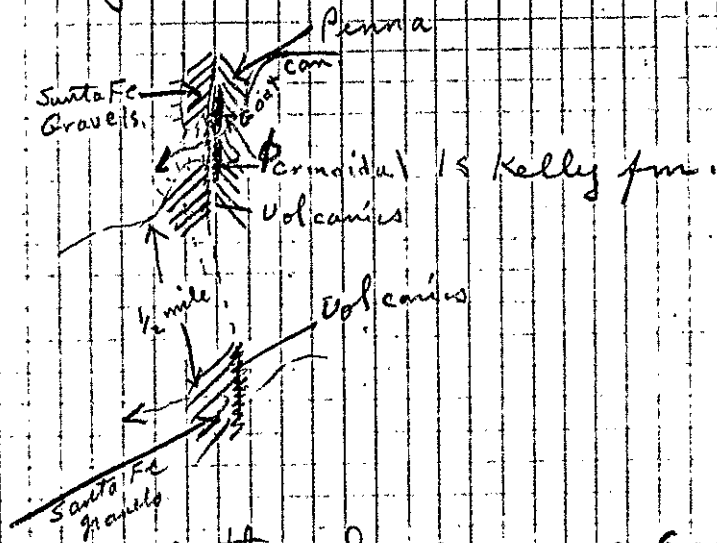 Penna
can
Santa Fe
Gravels.
Goat
ls Kelly fm.
Volcanics
1/2 mile
Volcanics
Santa Fe
gravels